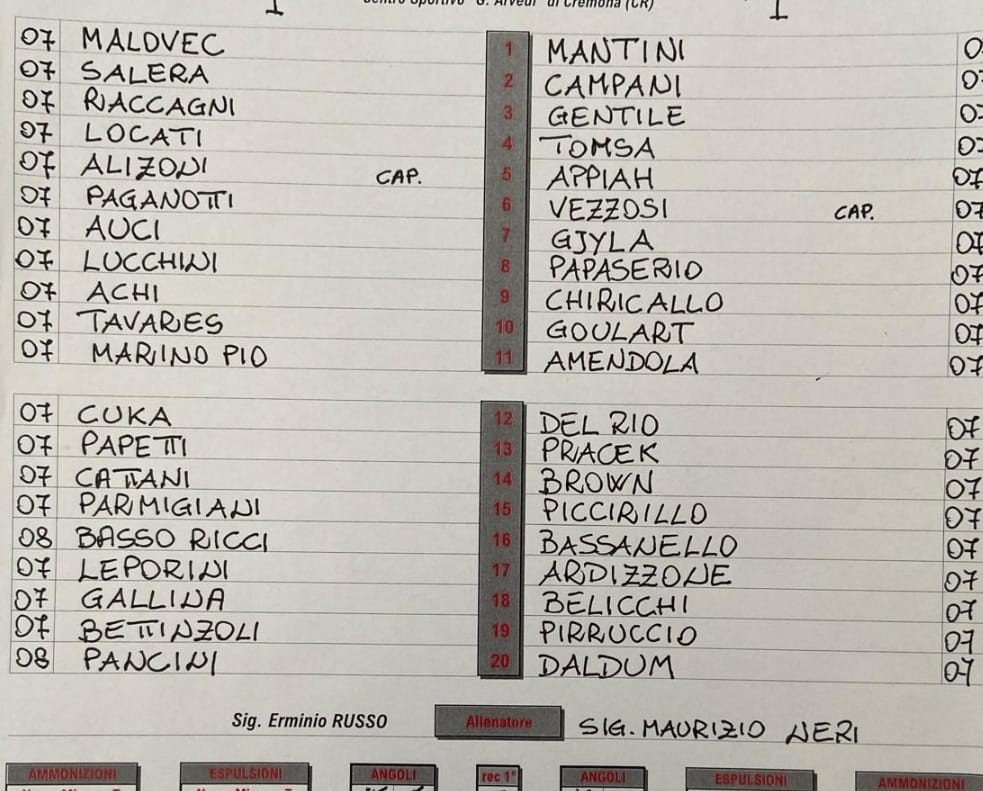 Centro Sportivo "G. Arvedi" di Cremona (CR)
07 MALOVEC 1 MANTINI
07 SALERA 2 CAMPANI
07 RACCAGNI 3 GENTILE
07 LOCATI 4 TOMSA
07 ALIZONI CAP. 5 APPIAH 07
07 PAGANOTTI 6 VEZZOSI CAP. 07
07 AUCI 7 GJYLA 07
07 LUCCHINI 8 PAPASERIO 07
07 ACHI 9 CHIRICALLO 07
07 TAVARES 10 GOULART 07
07 MARINO PIO 11 AMENDOLA 07
07 CUKA 12 DEL RIO 07
07 PAPETTI 13 PRACEK 07
07 CATTANI 14 BROWN 07
07 PARMIGIANI 15 PICCIRILLO 07
08 BASSO RICCI 16 BASSANELLO 07
07 LEPORINI 17 ARDIZZONE 07
07 GALLINA 18 BELICCHI 07
07 BETTINZOLI 19 PIRRUCCIO 07
08 PANCINI 20 DALDUM 07
Sig. Erminio RUSSO Allenatore SIG. MAURIZIO NERI
AMMONIZIONI ESPULSIONI ANGOLI rec 1° ANGOLI ESPULSIONI AMMONIZIONI